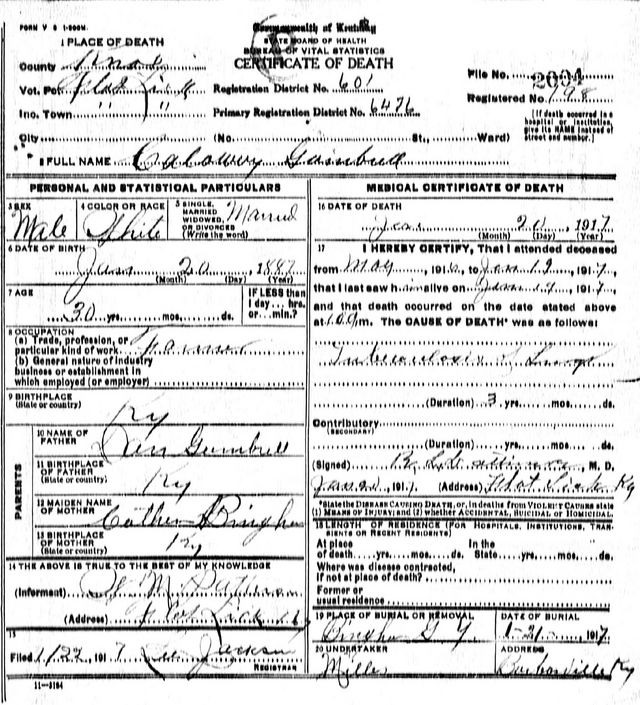 FORM V S 1-500M.
Commonwealth of Kentucky
STATE BOARD OF HEALTH
BUREAU OF VITAL STATISTICS
CERTIFICATE OF DEATH
1 PLACE OF DEATH
County Knox
Vot. Pct Flat Lick
Inc. Town " "
City
Registration District No. 601
Primary Registration District No. 6476
(No. St., Ward)
File No. 2004
Registered No. 198
[If death occurred in a
hospital or institution,
give its NAME instead of
street and number.]
2 FULL NAME Caloway Gambrell
PERSONAL AND STATISTICAL PARTICULARS
3 SEX
Male
4 COLOR OR RACE
White
5 SINGLE,
MARRIED
WIDOWED,
OR DIVORCED
(Write the word)
Married
6 DATE OF BIRTH
Jan 20, 1887
(Month) (Day) (Year)
7 AGE
30 yrs. mos. ds.
IF LESS than
1 day... hrs.
or... min.?
8 OCCUPATION
(a) Trade, profession, or
particular kind of work Farmer
(b) General nature of industry
business or establishment in
which employed (or employer)
9 BIRTHPLACE
(State or country)
Ky
PARENTS
10 NAME OF
FATHER
Gambrell
11 BIRTHPLACE
OF FATHER
(State or country)
Ky
12 MAIDEN NAME
OF MOTHER
Bingham
13 BIRTHPLACE
OF MOTHER
(State or country)
Ky
14 THE ABOVE IS TRUE TO THE BEST OF MY KNOWLEDGE
(Informant) M
(Address) Flat Lick Ky
15
Filed 1/22 1917 Lee Jackson
REGISTRAR
11-3184
MEDICAL CERTIFICATE OF DEATH
16 DATE OF DEATH
Jan 20, 1917
(Month) (Day) (Year)
17 I HEREBY CERTIFY, That I attended deceased
from May, 191 , to Jan 19, 1917,
that I last saw him alive on Jan 19, 1917,
and that death occurred on the date stated above
at m. The CAUSE OF DEATH* was as follows:
Tuberculosis of Lungs
(Duration) 3 yrs. mos. ds.
Contributory
(SECONDARY)
(Duration) yrs. mos. ds.
(Signed) M, D,
, 1917 (Address) Flat Lick Ky
*State the DISEASE CAUSING DEATH, or, in deaths from VIOLENT CAUSES state
(1) MEANS OF INJURY; and (2) whether ACCIDENTAL, SUICIDAL OR HOMICIDAL.
18 LENGTH OF RESIDENCE (FOR HOSPITALS, INSTITUTIONS, TRAN-
SIENTS OR RECENT RESIDENTS)
At place In the
of death yrs. mos. ds. State yrs. mos. ds.
Where was disease contracted,
if not at place of death?
Former or
usual residence
19 PLACE OF BURIAL OR REMOVAL
Bingham G Y.
DATE OF BURIAL
1-21-, 1917
20 UNDERTAKER
Miller
ADDRESS
Barbourville Ky